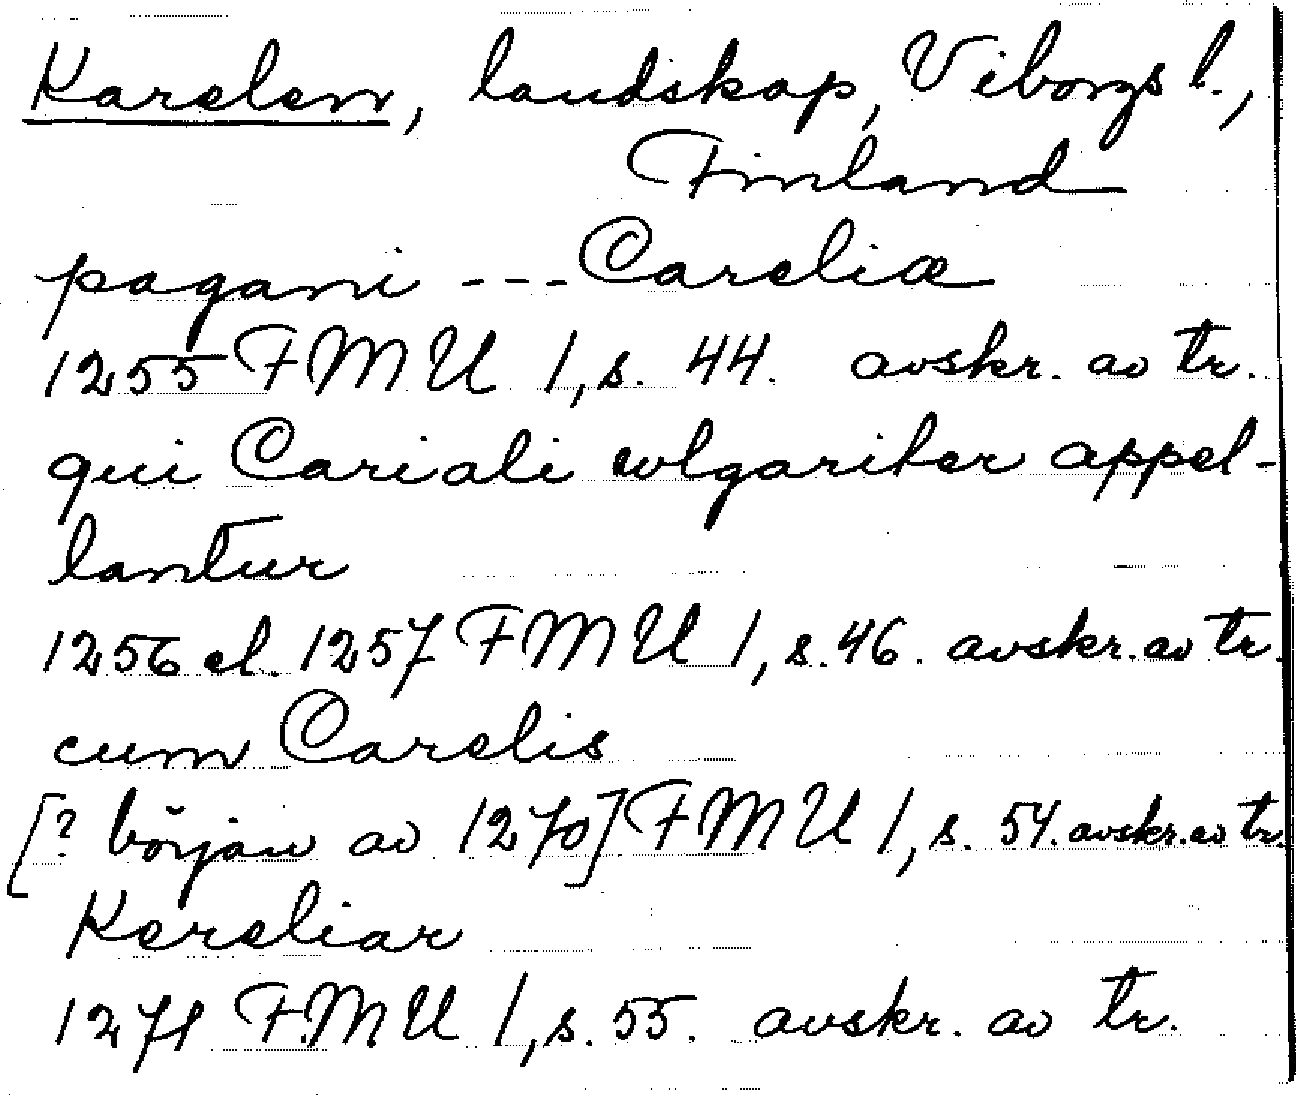 Karelen, landskap, Viborgs l.,
Finland
pagani --- Careliæ
1255 FMU 1, s. 44. avskr. av tr.
qui Cariali wlgariter appel-
lantur
1256 el. 1257 FMU 1, s. 46. avskr. av tr.
cum Carelis
[? början av 1270] FMU 1, s. 54. avskr. av tr.
Kereliar
1271 FMU 1, s. 55. avskr. av tr.